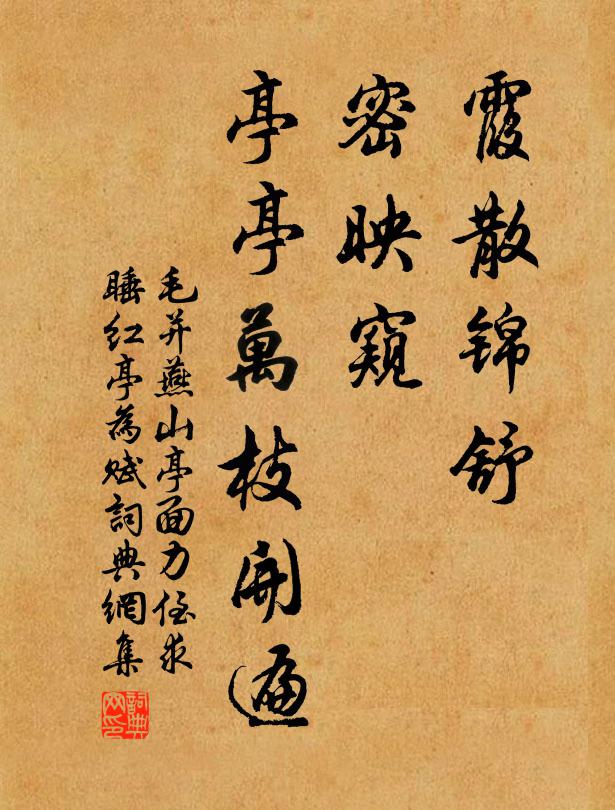 霞散錦舒
密映窺
亭亭萬枝開遍
毛并燕山亭面力侄求
睡紅亭為賦詞典網集
詞典
网印